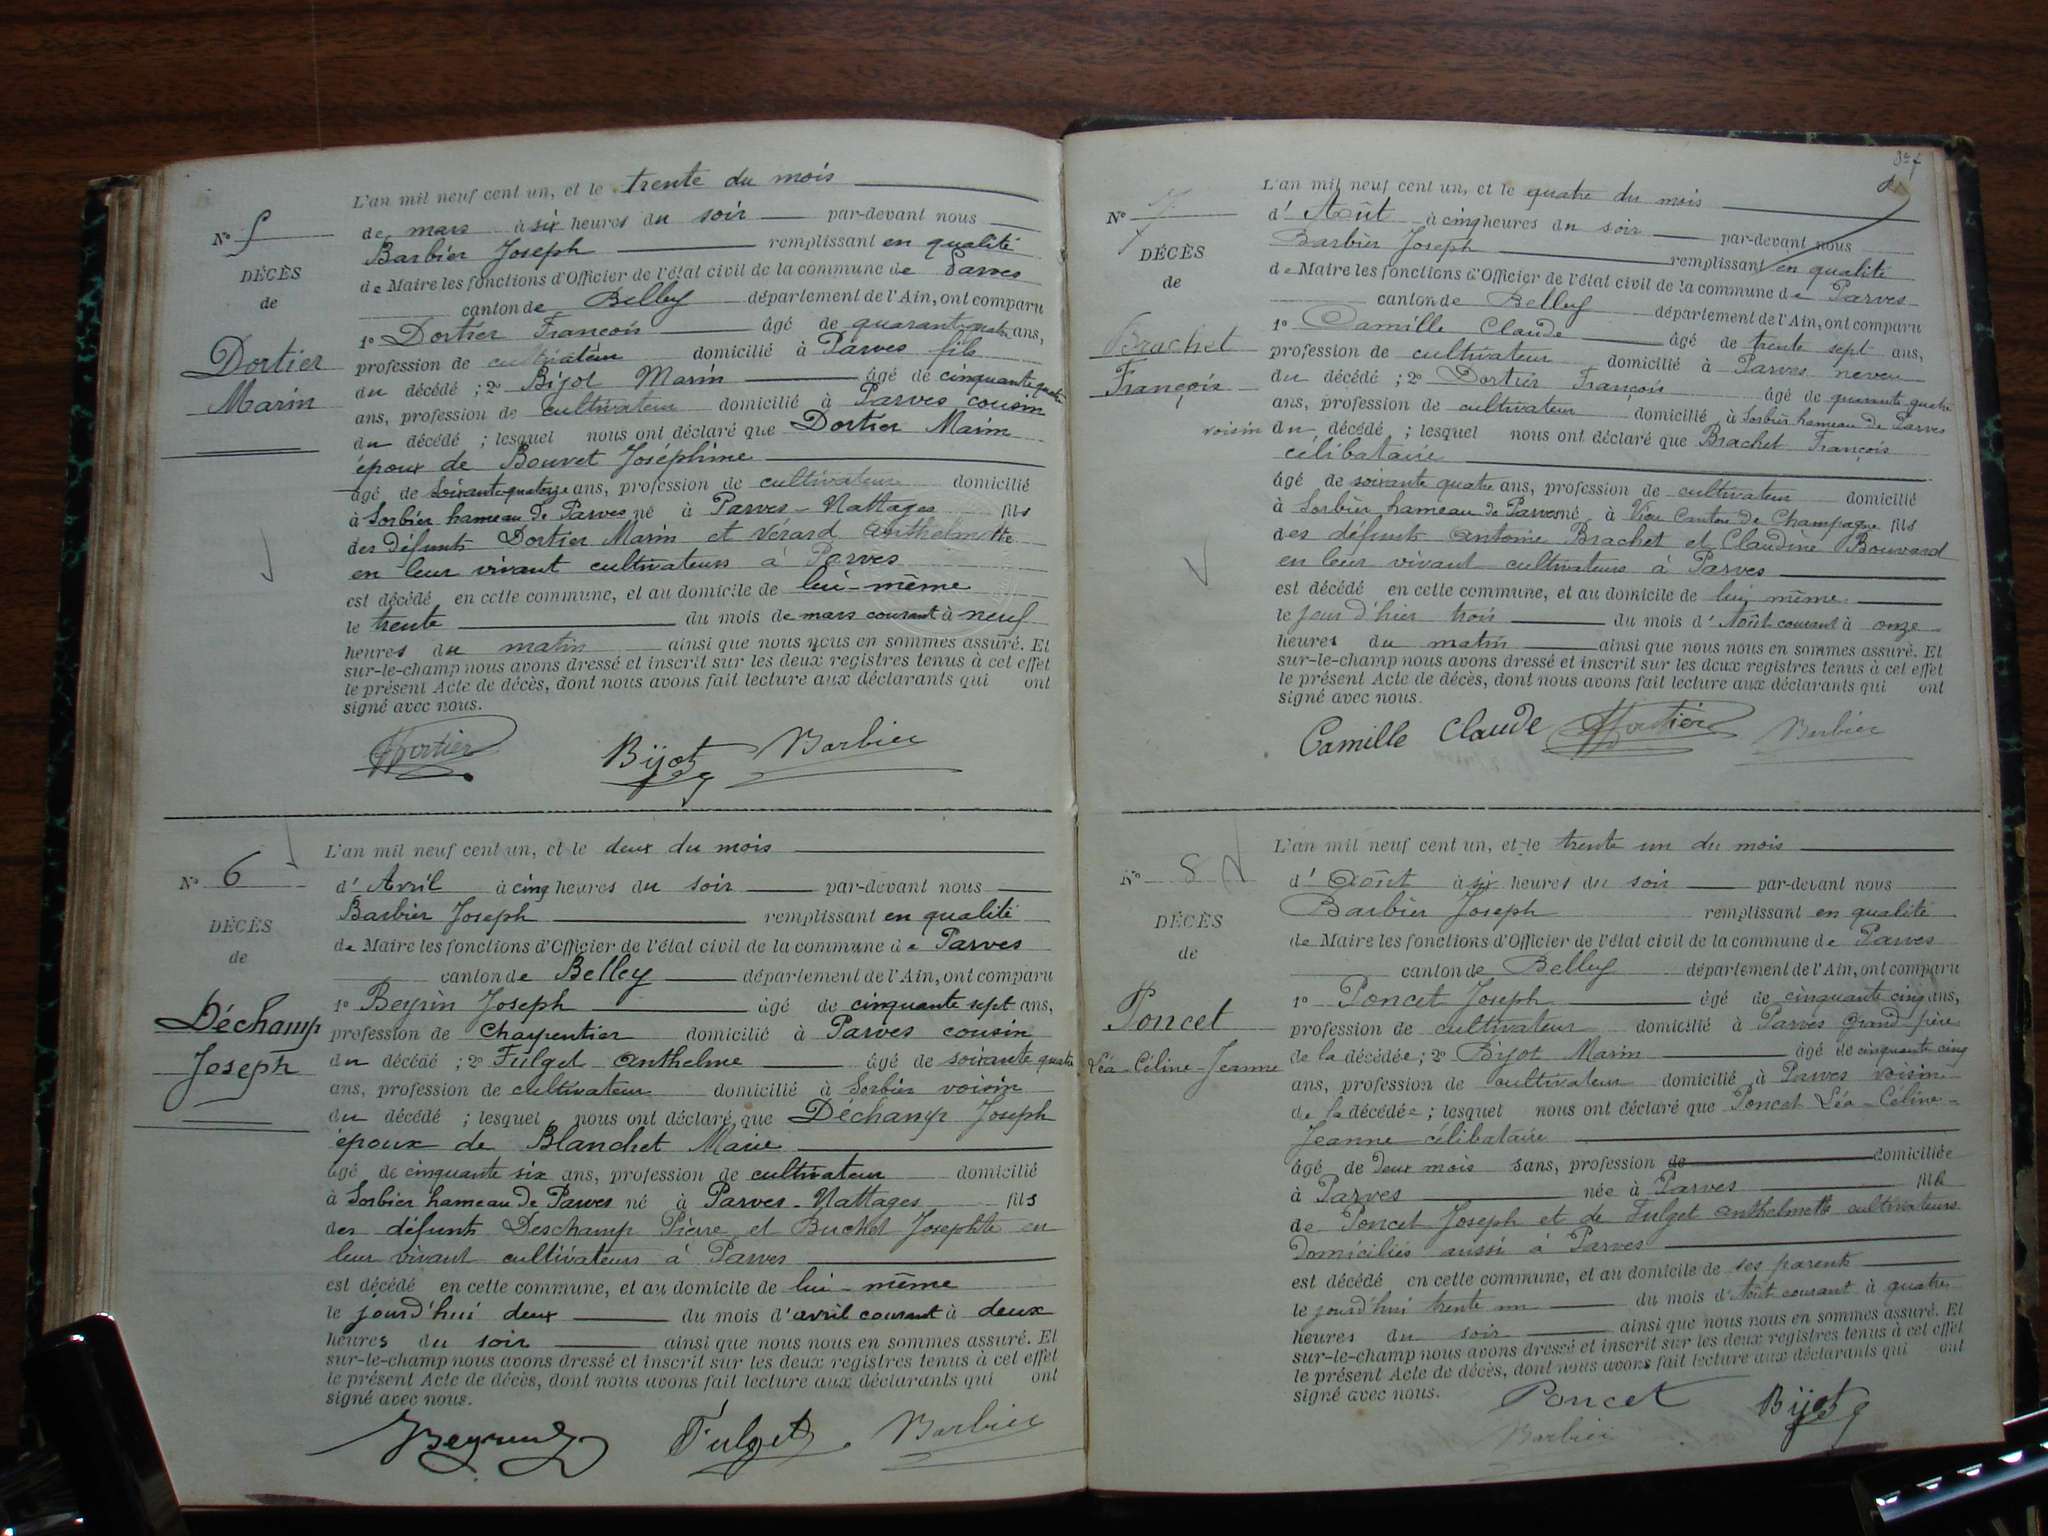 L'an mil neuf cent un, et le trente du mois
Nº 5
de mars à six heures du soir par-devant nous
Barbier Joseph remplissant en qualité
DÉCÈS
de Maire les fonctions d'Officier de l'état civil de la commune de Parves
de
canton de Belley département de l'Ain, ont comparu
1º Dortier François âgé de quarante quatre ans,
Dortier
profession de cultivateur domicilié à Parves fils
du décédé ; 2º Bijot Marin âgé de cinquante quatre
Marin
ans, profession de cultivateur domicilié à Parves cousin
du décédé ; lesquel nous ont déclaré que Dortier Marin
époux de Bouvet Joséphine
âgé de soixante quatorze ans, profession de cultivateur domicilié
à Sorbier hameau de Parves né à Parves-Nattages fils
des défunts Dortier Marin et Vérard Anthelmette
en leur vivant cultivateurs à Parves
est décédé en cette commune, et au domicile de lui-même
le trente du mois de mars courant à neuf
heures du matin ainsi que nous nous en sommes assuré. Et
sur-le-champ nous avons dressé et inscrit sur les deux registres tenus à cet effet
le présent Acte de décès, dont nous avons fait lecture aux déclarants qui ont
signé avec nous.
Dortier Bijot Barbier
L'an mil neuf cent un, et le deux du mois
Nº 6
d'Avril à cinq heures du soir par-devant nous
Barbier Joseph remplissant en qualité
DÉCÈS
de Maire les fonctions d'Officier de l'état civil de la commune de Parves
de
canton de Belley département de l'Ain, ont comparu
1º Beyrin Joseph âgé de cinquante sept ans,
Déchamp
profession de Charpentier domicilié à Parves cousin
du décédé ; 2º Fulget Anthelme âgé de soixante quatre
Joseph
ans, profession de cultivateur domicilié à Sorbier voisin
du décédé ; lesquel nous ont déclaré que Déchamp Joseph
époux de Blanchet Marie
âgé de cinquante six ans, profession de cultivateur domicilié
à Sorbier hameau de Parves né à Parves-Nattages fils
des défunts Deschamp Pierre et Buchet Josephte en
leur vivant cultivateurs à Parves
est décédé en cette commune, et au domicile de lui-même
le jourd'hui deux du mois d'avril courant à deux
heures du soir ainsi que nous nous en sommes assuré. Et
sur-le-champ nous avons dressé et inscrit sur les deux registres tenus à cet effet
le présent Acte de décès, dont nous avons fait lecture aux déclarants qui ont
signé avec nous.
Fulget Barbier
L'an mil neuf cent un, et le quatre du mois
Nº 7
d'Août à cinq heures du soir par-devant nous
Barbier Joseph remplissant en qualité
DÉCÈS
de Maire les fonctions d'Officier de l'état civil de la commune de Parves
de
canton de Belley département de l'Ain, ont comparu
1º Camille Claude âgé de trente sept ans,
Brachet
profession de cultivateur domicilié à Parves neveu
François
du décédé ; 2º Dortier François âgé de quarante quatre
ans, profession de cultivateur domicilié à Sorbier hameau de Parves
voisin du décédé ; lesquel nous ont déclaré que Brachet François
célibataire
âgé de soixante quatre ans, profession de cultivateur domicilié
à Sorbier hameau de Parves né à Vieu Canton de Champagne fils
des défunts Antoine Brachet et Claudine Bouvard
en leur vivant cultivateurs à Parves
est décédé en cette commune, et au domicile de lui même
le jour d'hier trois du mois d'Août courant à onze
heures du matin ainsi que nous nous en sommes assuré. Et
sur-le-champ nous avons dressé et inscrit sur les deux registres tenus à cet effet
le présent Acte de décès, dont nous avons fait lecture aux déclarants qui ont
signé avec nous.
Camille Claude Dortier Barbier
L'an mil neuf cent un, et le trente un du mois
Nº 8
d'Août à six heures du soir par-devant nous
Barbier Joseph remplissant en qualité
DÉCÈS
de Maire les fonctions d'Officier de l'état civil de la commune de Parves
de
canton de Belley département de l'Ain, ont comparu
1º Poncet Joseph âgé de cinquante cinq ans,
Poncet
profession de cultivateur domicilié à Parves Grand père
Léa-Céline-Jeanne
de la décédée ; 2º Bijot Marin âgé de cinquante cinq
ans, profession de cultivateur domicilié à Parves voisin
de la décédée ; lesquel nous ont déclaré que Poncet Léa-Céline-
Jeanne célibataire
âgé de Deux mois sans, profession de domiciliée
à Parves née à Parves fille
de Poncet Joseph et de Fulget Anthelmette cultivateurs
Domiciliés aussi à Parves
est décédé en cette commune, et au domicile de ses parents
le jourd'hui trente un du mois d'Août courant à quatre
heures du soir ainsi que nous nous en sommes assuré. Et
sur-le-champ nous avons dressé et inscrit sur les deux registres tenus à cet effet
le présent Acte de décès, dont nous avons fait lecture aux déclarants qui ont
signé avec nous.
Poncet Bijot
Barbier